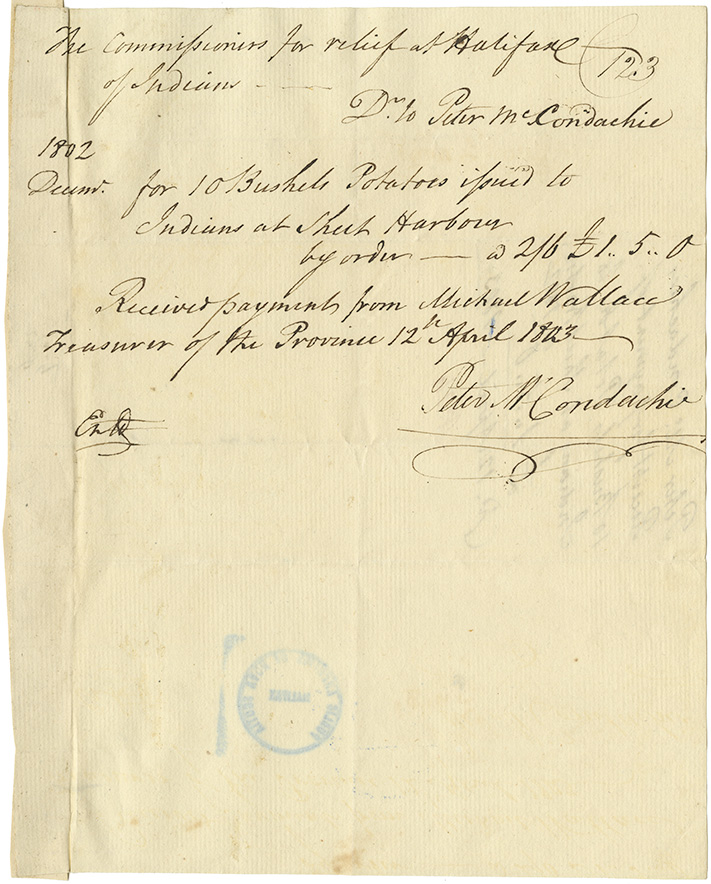 The Commissioners for relief at Halifax
123
of Indians
Dr. to Peter McCondachie
1802
Decemr. for 10 Bushels Potatoes issued to
Indians at Sheet Harbour
by order — a 2/6 £1.. 5.. 0
Received payments from Michael Wallace
Treasurer of the Province 12th April 1803
Peter McCondachie
Entd